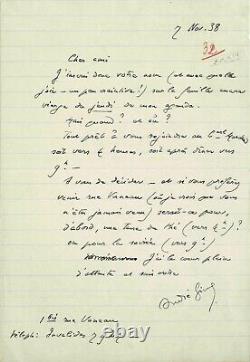 7 Nov. 38
38
Cher ami
J'inscris donc votre nom (et avec quelle
joie - un peu craintive!) sur la feuille encore
vierge du jeudi de mon agenda.
Mais quand? et où?
Tout prêt à vous rejoindre au
soit vers 4 heures, soit après dîner vers
9h -
A vous de décider - et si vous préférez
venir rue Vaneau (où je crois que vous
n'êtes jamais venu) serait-ce pour,
d'abord, une tasse de thé (vers 4h)?
ou pour la soirée (vers 9h)
J'ai le cœur plein
d'attente et suis votre
André Gide
1 bis rue Vaneau
téléph: Invalides